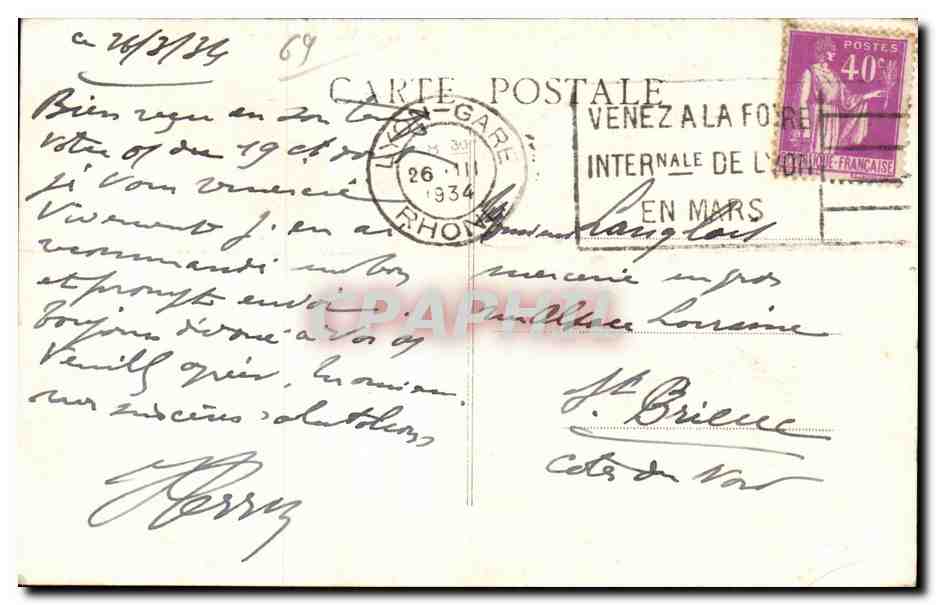 ce 26/3/34
69
CARTE POSTALE
Bien reçu en son temps
votre of du 19 ct dont
je vous remercie
Vivement j'en ai
recommandé un bon
et prompt envoi.
toujours dévoué à vos of
Veuillez agréer, Monsieur
nos sincères salutations
LYON-GARE
26 III
1934
RHONE
VENEZ A LA FOIRE
INTERNALE DE LYON
EN MARS
POSTES
40c
FRANÇAISE
Monsieur Langlois
mercerie en gros
rue Alsace Lorraine
St. Brieuc
Cotes du Nord
CPAPHIL